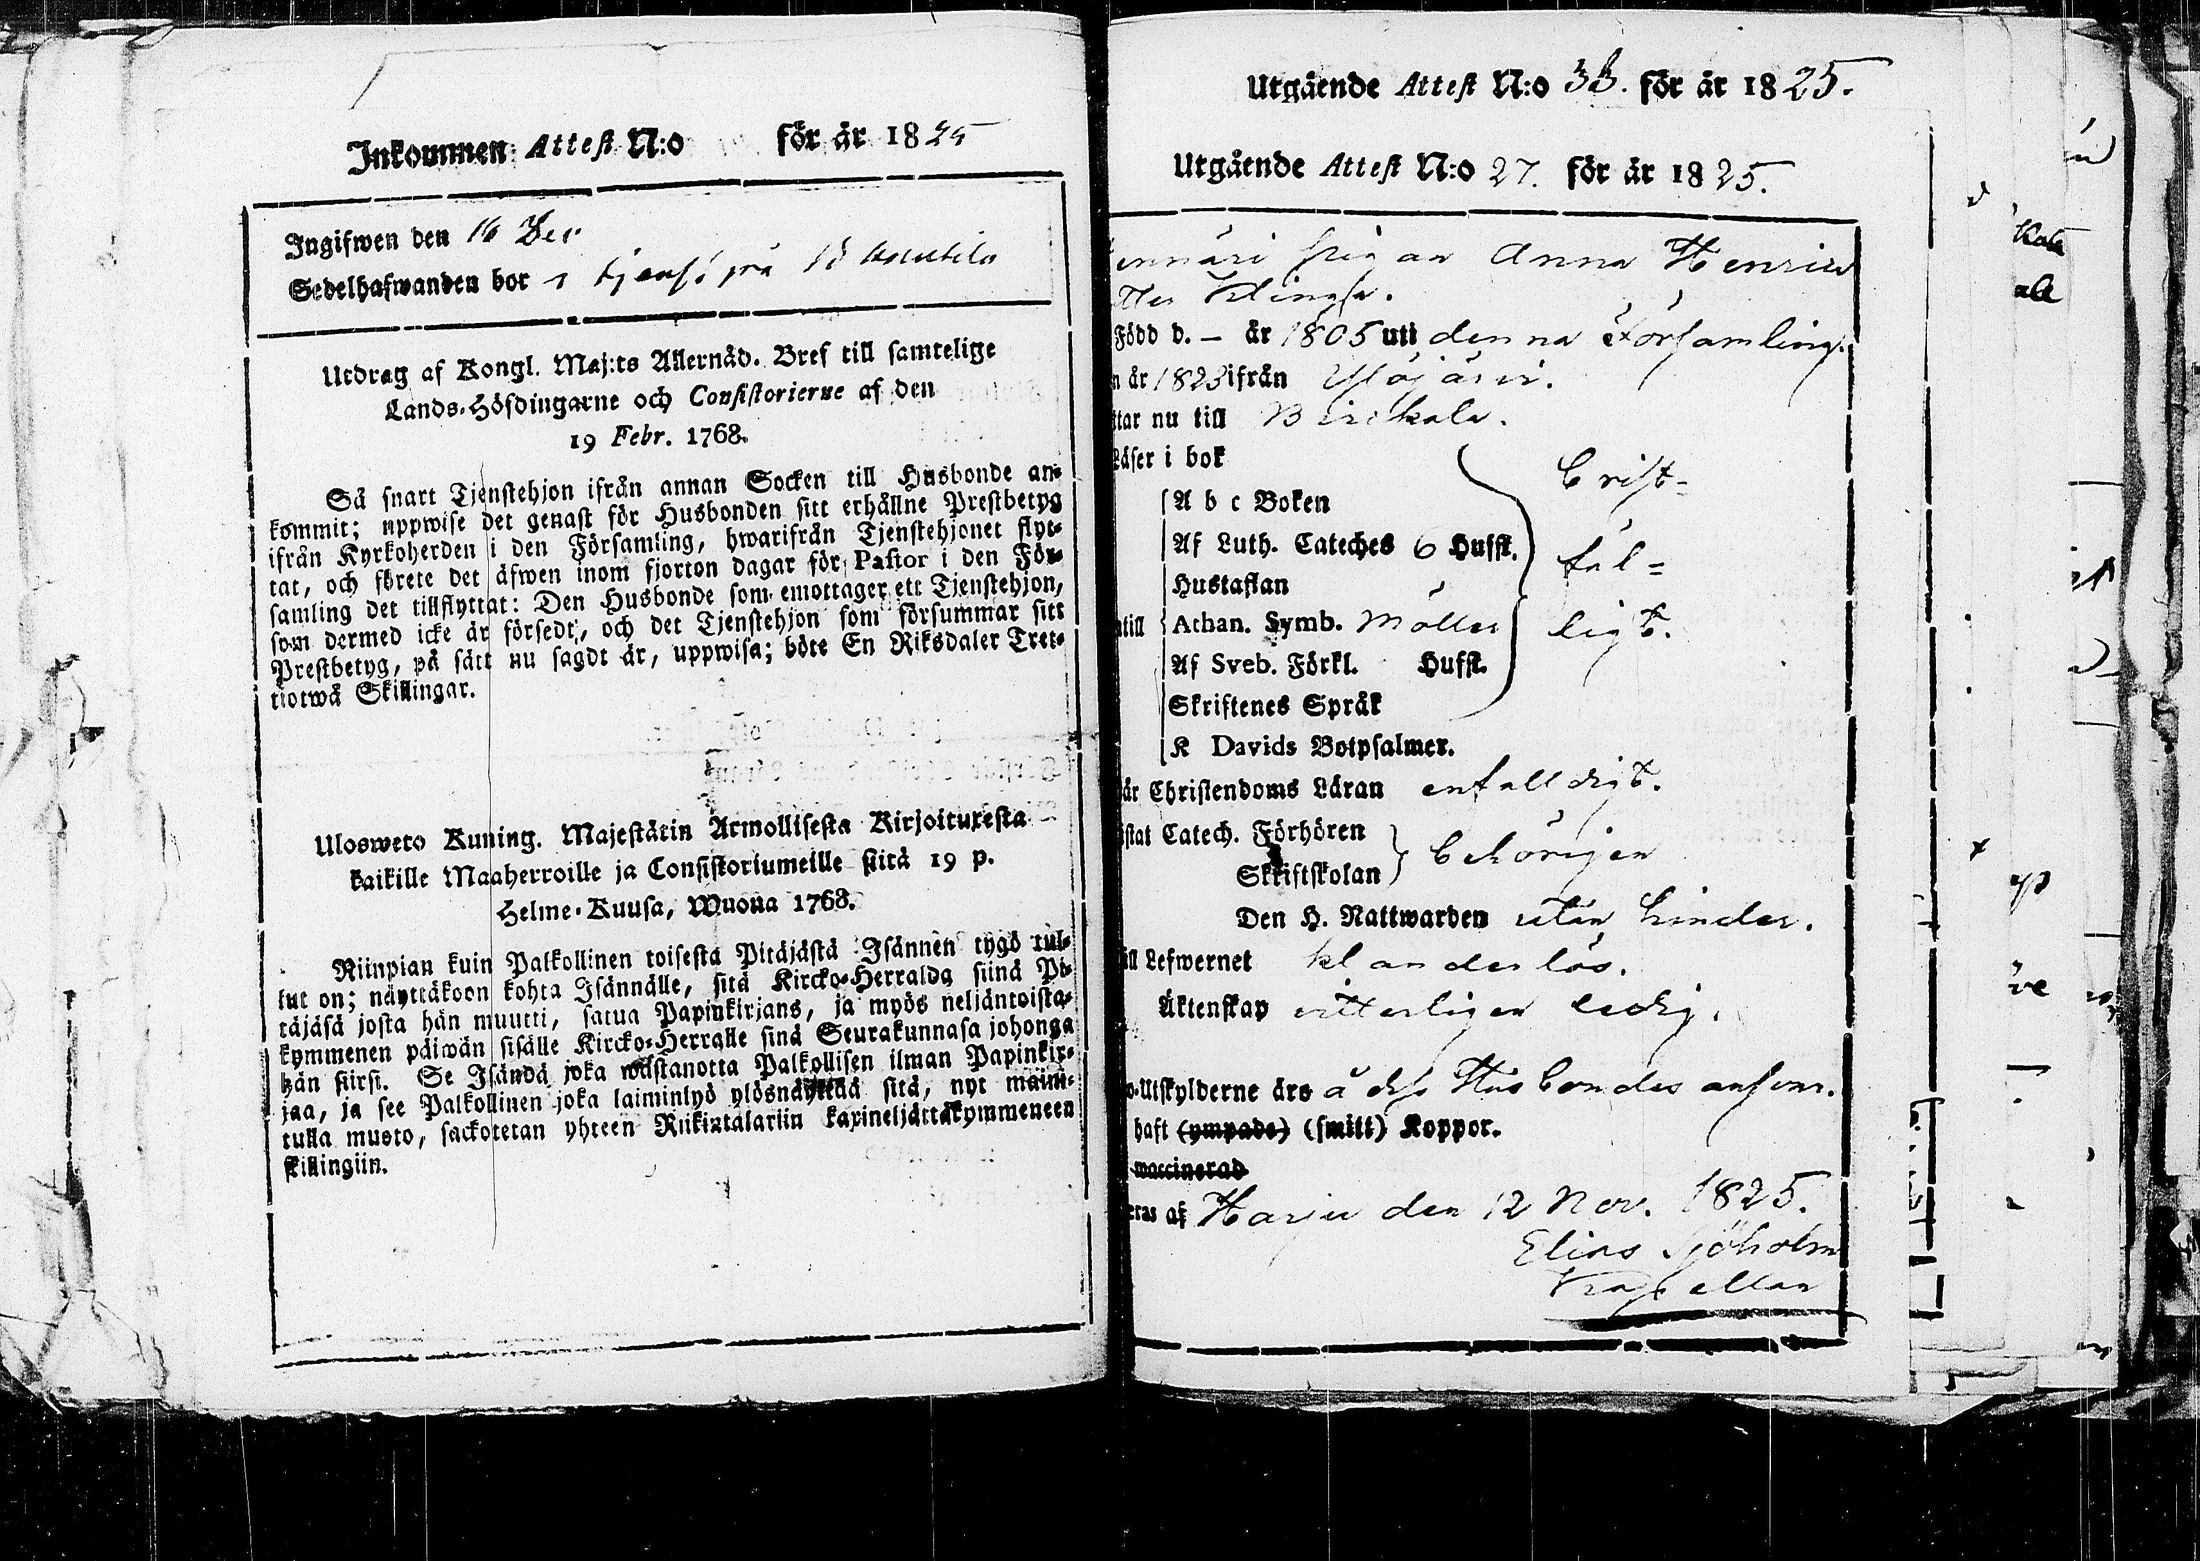 Inkommen Attest N:o för år 1825
Ingifwen den 16 Dec
Sedelhafwanden bor i tjenst på
Utdrag af Kongl. Maj:ts Allernåd. Bref till samtelige
Lands-Höfdingarne och Consistorierne af den
19 Febr. 1768.
Så snart Tjenstehjon ifrån annan Socken till Husbonde an-
kommit; uppwise det genast för Husbonden sitt erhållne Prestbetyg
ifrån Kyrkoherden i den Församling, hwarifrån Tjenstehjonet flyt-
tat, och förete det äfwen inom fjorton dagar för Pastor i den För-
samling det tillflyttat: Den Husbonde som emottager ett Tjenstehjon,
som dermed icke är försedt, och det Tjenstehjon som försummar sitt
Prestbetyg, på sätt nu sagdt är, uppwisa; böte En Riksdaler Tret-
tiotwå Skillingar.
Ulosweto Kuning. Majestätin Armollisesta Kirjoituxesta
kaikille Maaherroille ja Consistoriumeille siitä 19 p.
Helme-Kuusa, Wuona 1768.
Niinpian kuin Palkollinen toisesta Pitäjästä Isännen tygö tul-
lut on; näyttäkoon kohta Isännälle, sitä Kircko-Herralda siinä Pi-
täjäsä josta hän muutti, satua Papinkirjans, ja myös neljäntoista-
kymmenen päiwän sisälle Kircko-Herralle sinä Seurakunnasa johonga
hän siirsi. Se Isändä joka wastanotta Palkollisen ilman Papinkir-
jaa, ja see Palkollinen joka laiminlyö ylösnäyttää sitä, nyt maini-
tulla muoto, sackotetan yhteen Riikintalariin kaxineljättäkymmeneen
skillingiin.
Utgående Attest N:o 33. för år 1825.
Utgående Attest N:o 27. för år 1825.
Pigan Anna Henrics
Född d. – år 1805 uti denna Församling.
år 1823 ifrån Ylöjärvi.
ttar nu till Birckala.
Läser i bok Crist-
A b c Boken
Af Luth. Cateches 6 Hufst. fäl-
Hustaflan
Athan. Symb. Möller ligt.
Af Sveb. Förkl. Hufst.
Skriftenes Språk
K Davids Botpsalmer.
är Christendoms Läran enfalldigt.
istat Catech. Förhören
Skriftskolan behörigen
Den H. Nattwarden utan hinder.
ill Lefwernet klanderlös.
Äktenskap witterligen ledig.
o-Utskylderne äro å dess Husbondes answar.
haft (ympade) (smitt) Koppor.
waccinerad
eras af Harju den 12 Nov. 1825.
Elias Sjöholm
Kapellan